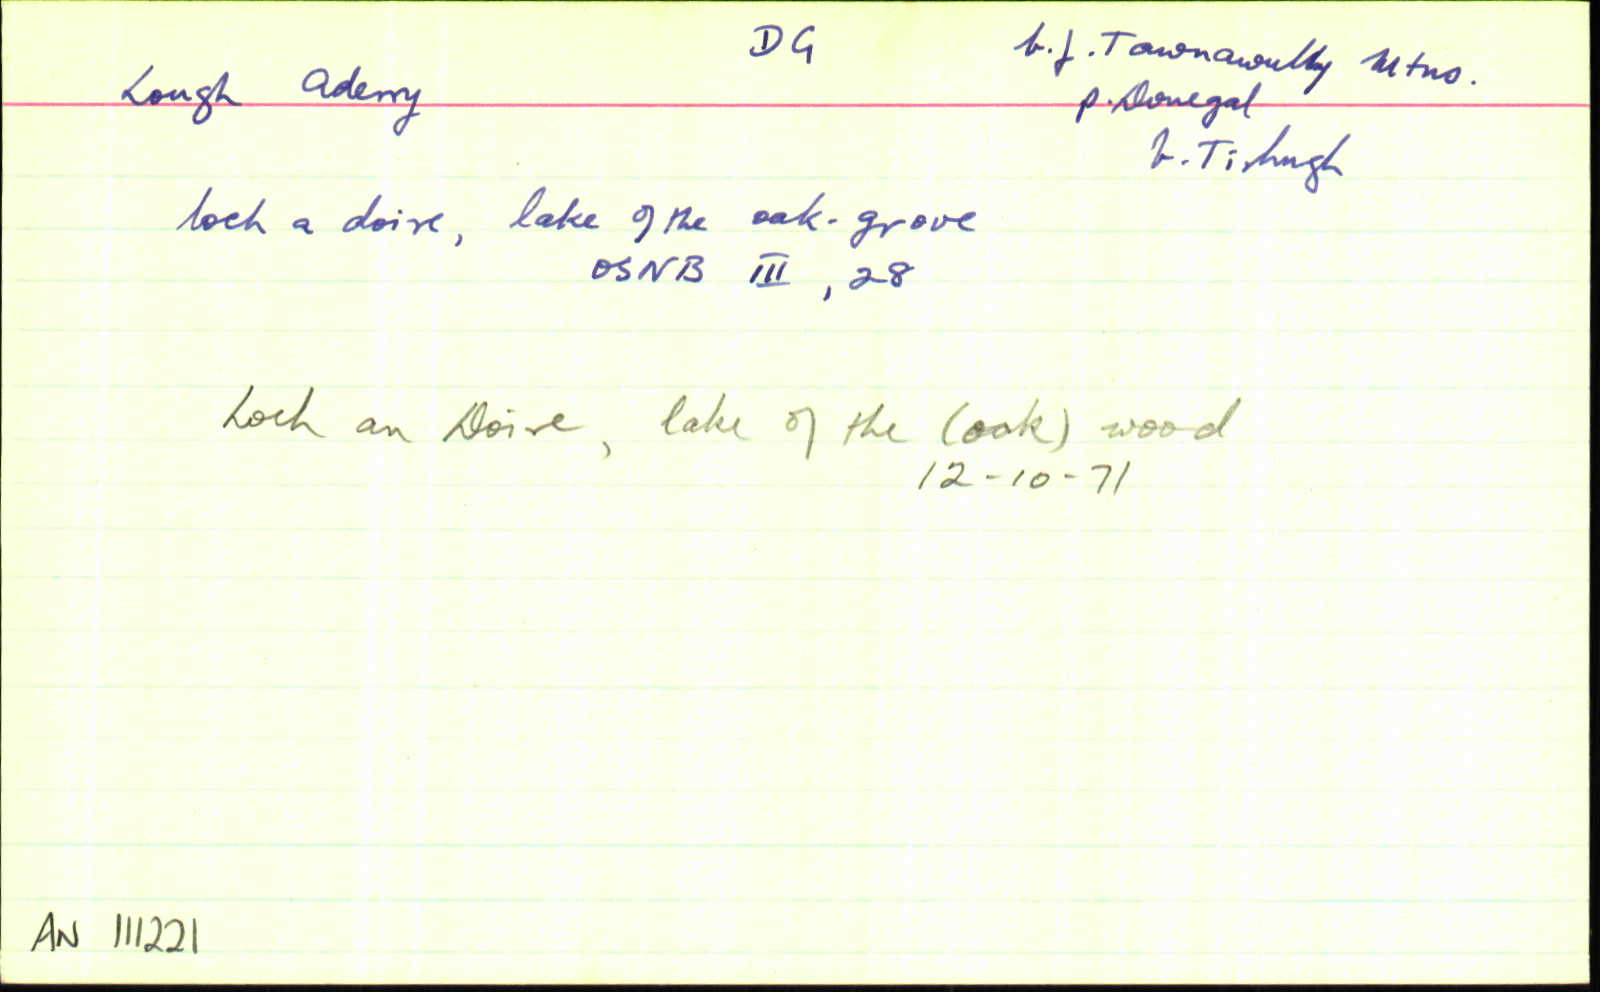 DG
b.f. Tawnawully Mtns.
Lough Aderry
p. Donegal
b. Tirhugh
loch a doire, lake of the oak-grove
OSNB III, 28
Loch an Doire, lake of the (oak) wood
12-10-71
AN 111221